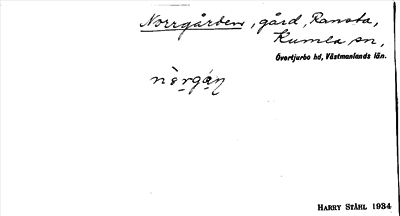 Norrgården, gård, Ransta,
Kumla sn,
Övertjurbo hd, Västmanlands län.
nòrgán
HARRY STÅHL 1934